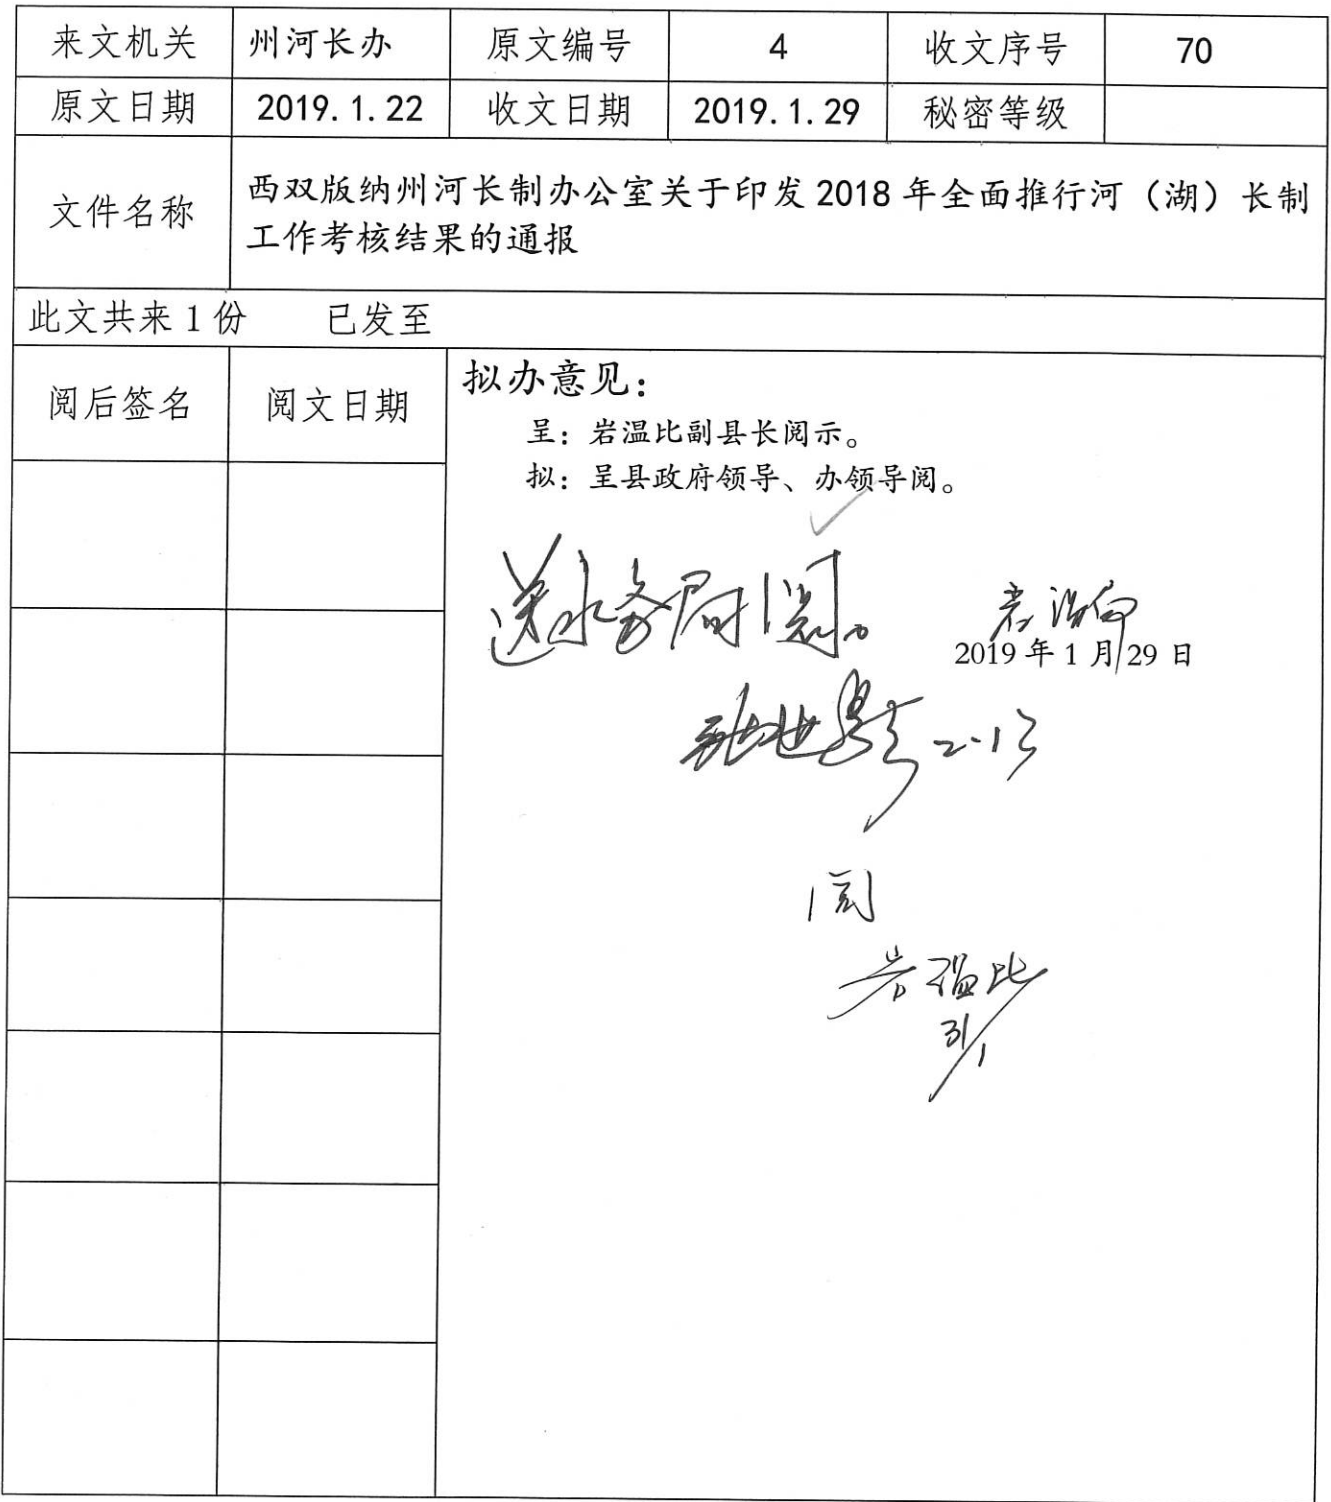 来文机关 州河长办 原文编号 4 收文序号 70
原文日期 2019.1.22 收文日期 2019.1.29 秘密等级
文件名称
西双版纳州河长制办公室关于印发 2018 年全面推行河（湖）长制
工作考核结果的通报
此文共来 1 份 已发至
阅后签名 阅文日期
拟办意见：
呈：岩温比副县长阅示。
拟：呈县政府领导、办领导阅。
送水务局阅。
2019 年 1 月 29 日
2.13
阅
岩温比
31/1